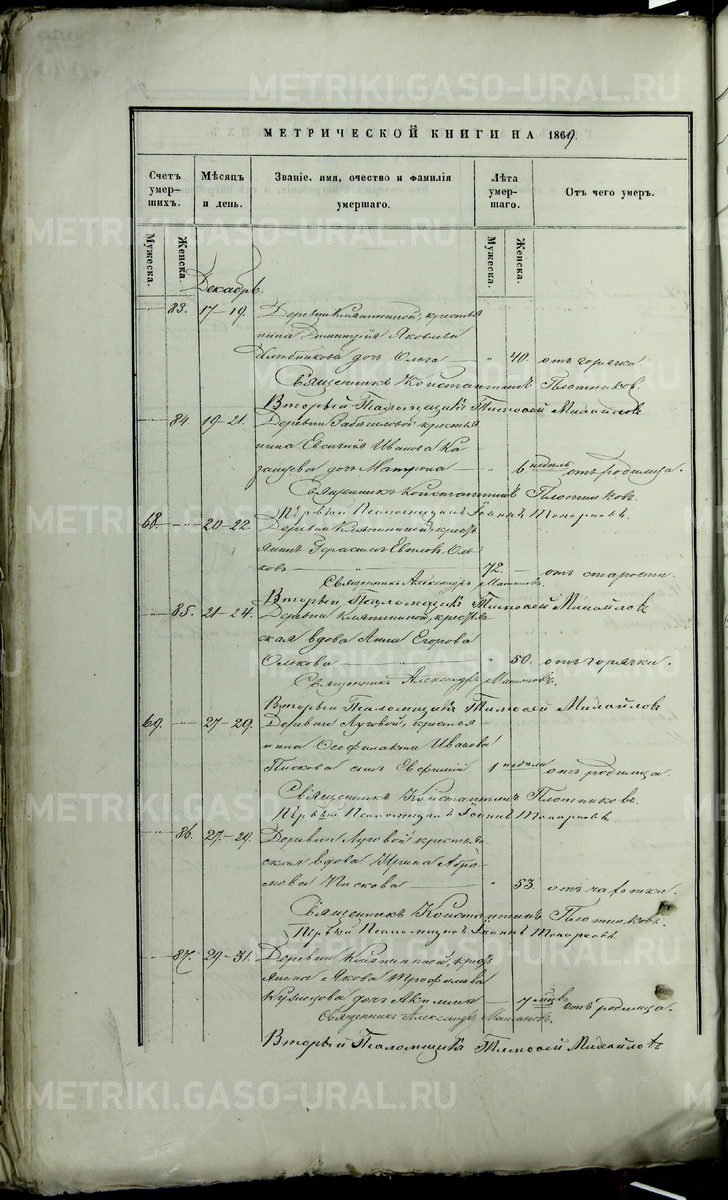 МЕТРИЧЕСКОЙ КНИГИ НА 1869.
Счетъ умер- шихъ.
Мѣсяцъ и день.
Званіе, имя, очество и фамилія умершаго.
Лѣта умер- шаго.
Отъ чего умеръ.
Мужеска.
Женска.
Мужеска.
Женска.
Декабрь
83. 17–19. Деревни Кляпининой, кресть-
янина Димитрія Яковлева
дочь Ольга — „ 40. отъ горячки.
Священникъ Константинъ Плотниковъ.
Вторый Псаломщикъ Тимоѳей Михайловъ
84. 19–21. Деревни крестья-
нина Евсигнія Иванова Ка-
занцева дочь Матрона — „ 6 недѣль отъ родимца.
Священникъ Константинъ Плотниковъ.
Первый Псаломщикъ Іоаннъ Топорковъ.
68. 20–22. Деревни Кляпининой, крес-
янинъ Герасимъ Оль-
ковъ — 72. — отъ старости.
Священникъ Александръ
Вторый Псаломщикъ Тимоѳей Михайловъ
85. 21–24. Деревни Кляпининой, кресть-
ская вдова Анна Егорова
Олькова — „ 50. отъ горячки.
Священникъ Александръ
Вторый Псаломщикъ Тимоѳей Михайловъ
69. 27–29. Деревни Луговой, крестья-
нина Ѳеофилакта Иванова
Пискова сынъ Евфимій 1 недѣля отъ родимца.
Священникъ Константинъ Плотниковъ.
Первый Псаломщикъ Іоаннъ Топорковъ
86. 27–29. Деревни Луговой крестьян-
ская вдова Ирина Абра-
мова Пискова — „ 53. отъ чахотки.
Священникъ Константинъ Плотниковъ.
Первый Псаломщикъ Іоаннъ Топорковъ
87. 29–31. Деревни Кляпининой, крес-
янина Якова Трофимова
Кузнецова дочь Акилина — 7 мцъ отъ родимца.
Священникъ Александръ
Вторый Псаломщикъ Тимоѳей Михайловъ
METRIKI.GASO-URAL.RU